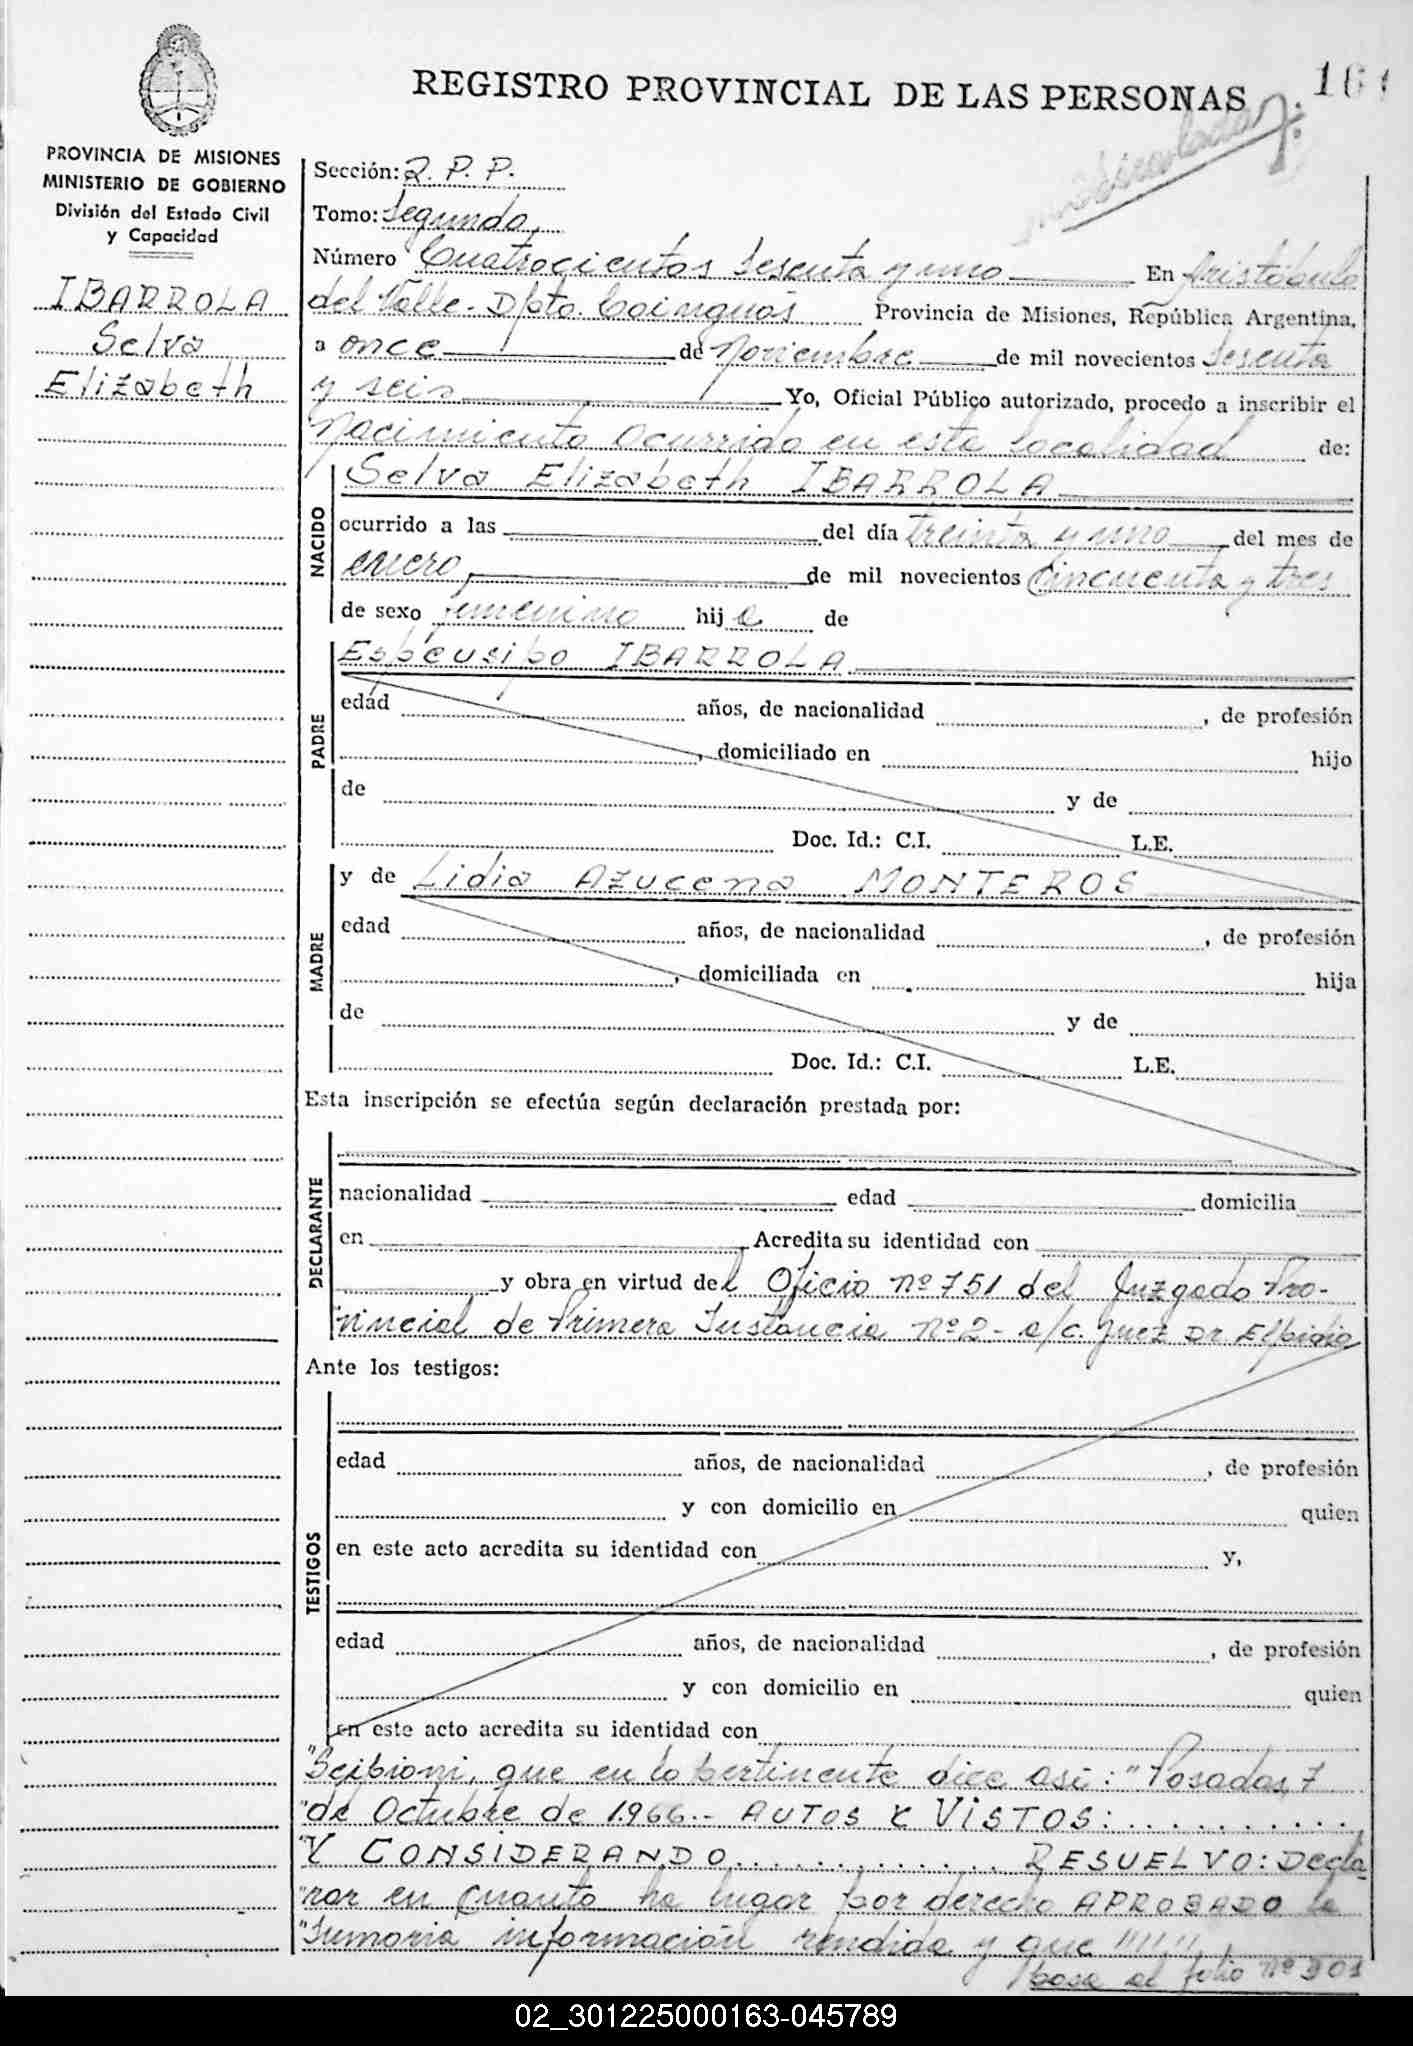 REGISTRO PROVINCIAL DE LAS PERSONAS
PROVINCIA DE MISIONES
MINISTERIO DE GOBIERNO
División del Estado Civil
y Capacidad
IBARROLA
Selva
Elizabeth
Sección: 2. P. P.
Tomo: Segundo
Número Cuatrocientos sesenta y uno En Aristóbulo
del Valle - Dpto. Cainguás Provincia de Misiones, República Argentina,
a once de Noviembre de mil novecientos sesenta
y seis Yo, Oficial Público autorizado, procedo a inscribir el
Nacimiento ocurrido en esta localidad de:
NACIDO
Selva Elizabeth IBARROLA
ocurrido a las del día treinta y uno del mes de
enero, de mil novecientos Cincuenta y tres
de sexo femenino hija de
PADRE
Espeusipo IBARROLA
edad años, de nacionalidad , de profesión
, domiciliado en hijo
de y de
Doc. Id.: C.I. L.E.
MADRE
y de Lidia Azucena MONTEROS
edad años, de nacionalidad , de profesión
, domiciliada en hija
de y de
Doc. Id.: C.I. L.E.
Esta inscripción se efectúa según declaración prestada por:
DECLARANTE
nacionalidad edad domicilia
en Acredita su identidad con
y obra en virtud del Oficio nº 751 del Juzgado Pro-
"vincial de Primera Instancia nº 2 - a/c. Juez Dr Elpidio
Ante los testigos:
TESTIGOS
edad años, de nacionalidad , de profesión
y con domicilio en quien
en este acto acredita su identidad con y,
edad años, de nacionalidad , de profesión
y con domicilio en quien
en este acto acredita su identidad con
"Scipioni, que en lo pertinente dice así: "Posadas, 7
"de Octubre de 1.966.- AUTOS Y VISTOS: ...........
"Y CONSIDERANDO............. RESUELVO: Decla
"rar en cuanto ha lugar por derecho APROBADO la
"Sumaria información rendida y que """"
pasa al folio nº 301
02_301225000163-045789